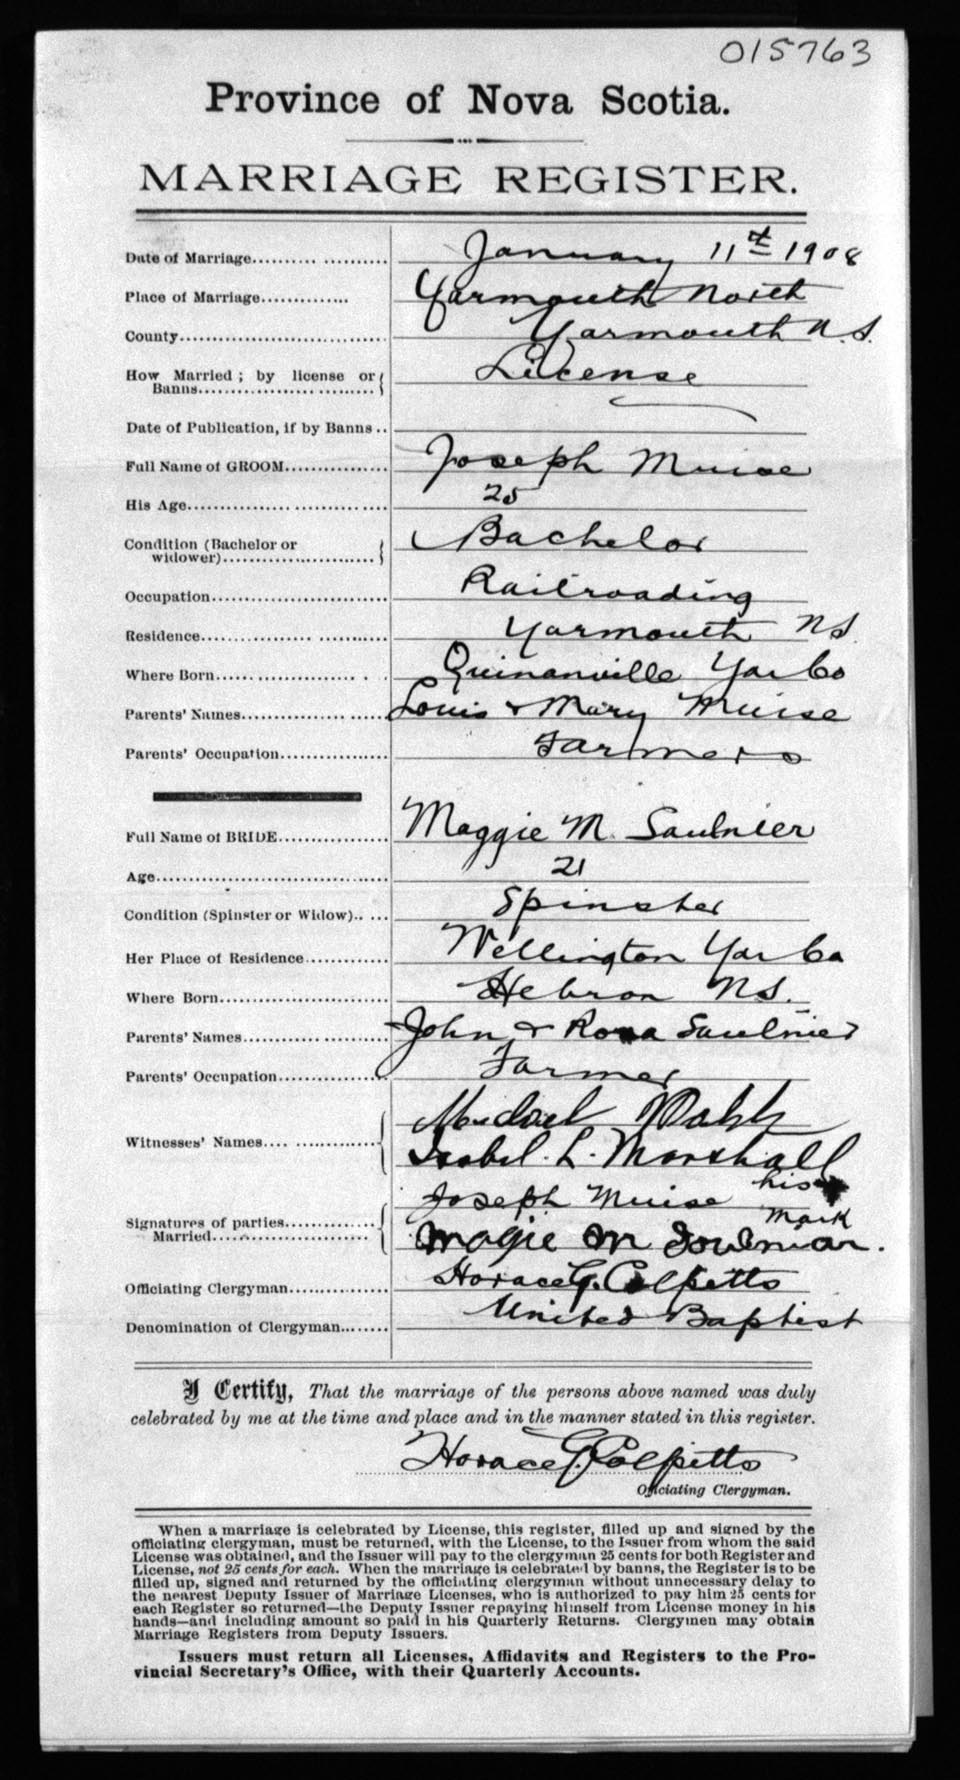 015763
Province of Nova Scotia.
MARRIAGE REGISTER.
Date of Marriage.................... January 11th 1908
Place of Marriage.............. Yarmouth North
County................................ Yarmouth N.S.
How Married; by license or
Banns........................ License
Date of Publication, if by Banns..
Full Name of GROOM............... Joseph Muise
His Age............................... 25
Condition (Bachelor or
widower)...................... Bachelor
Occupation........................... Railroading
Residence............................ Yarmouth NS.
Where Born....................... Quinanville Yar Co
Parents' Names..................... Louis & Mary Muise
Parents' Occupation................ Farmers
Full Name of BRIDE................ Maggie M. Saulnier
Age................................... 21
Condition (Spinster or Widow)..... Spinster
Her Place of Residence............ Wellington Yar Co
Where Born......................... Hebron NS.
Parents' Names.................... John & Rosa Saulnier
Parents' Occupation................ Farmer
Witnesses' Names................ Isabel. L. Marshall
Joseph Muise his
mark
Signatures of parties..............
Married....................... Magie M Soulniar.
Officiating Clergyman.............. Horace G. Colpitts
Denomination of Clergyman........ United Baptist
I Certify, That the marriage of the persons above named was duly
celebrated by me at the time and place and in the manner stated in this register.
Horace G. Colpitts
Officiating Clergyman.
When a marriage is celebrated by License, this register, filled up and signed by the
officiating clergyman, must be returned, with the License, to the Issuer from whom the said
License was obtained, and the Issuer will pay to the clergyman 25 cents for both Register and
License, not 25 cents for each. When the marriage is celebrated by banns, the Register is to be
filled up, signed and returned by the officiating clergyman without unnecessary delay to
the nearest Deputy Issuer of Marriage Licenses, who is authorized to pay him 25 cents for
each Register so returned—the Deputy Issuer repaying himself from License money in his
hands—and including amount so paid in his Quarterly Returns. Clergymen may obtain
Marriage Registers from Deputy Issuers.
Issuers must return all Licenses, Affidavits and Registers to the Pro-
vincial Secretary's Office, with their Quarterly Accounts.